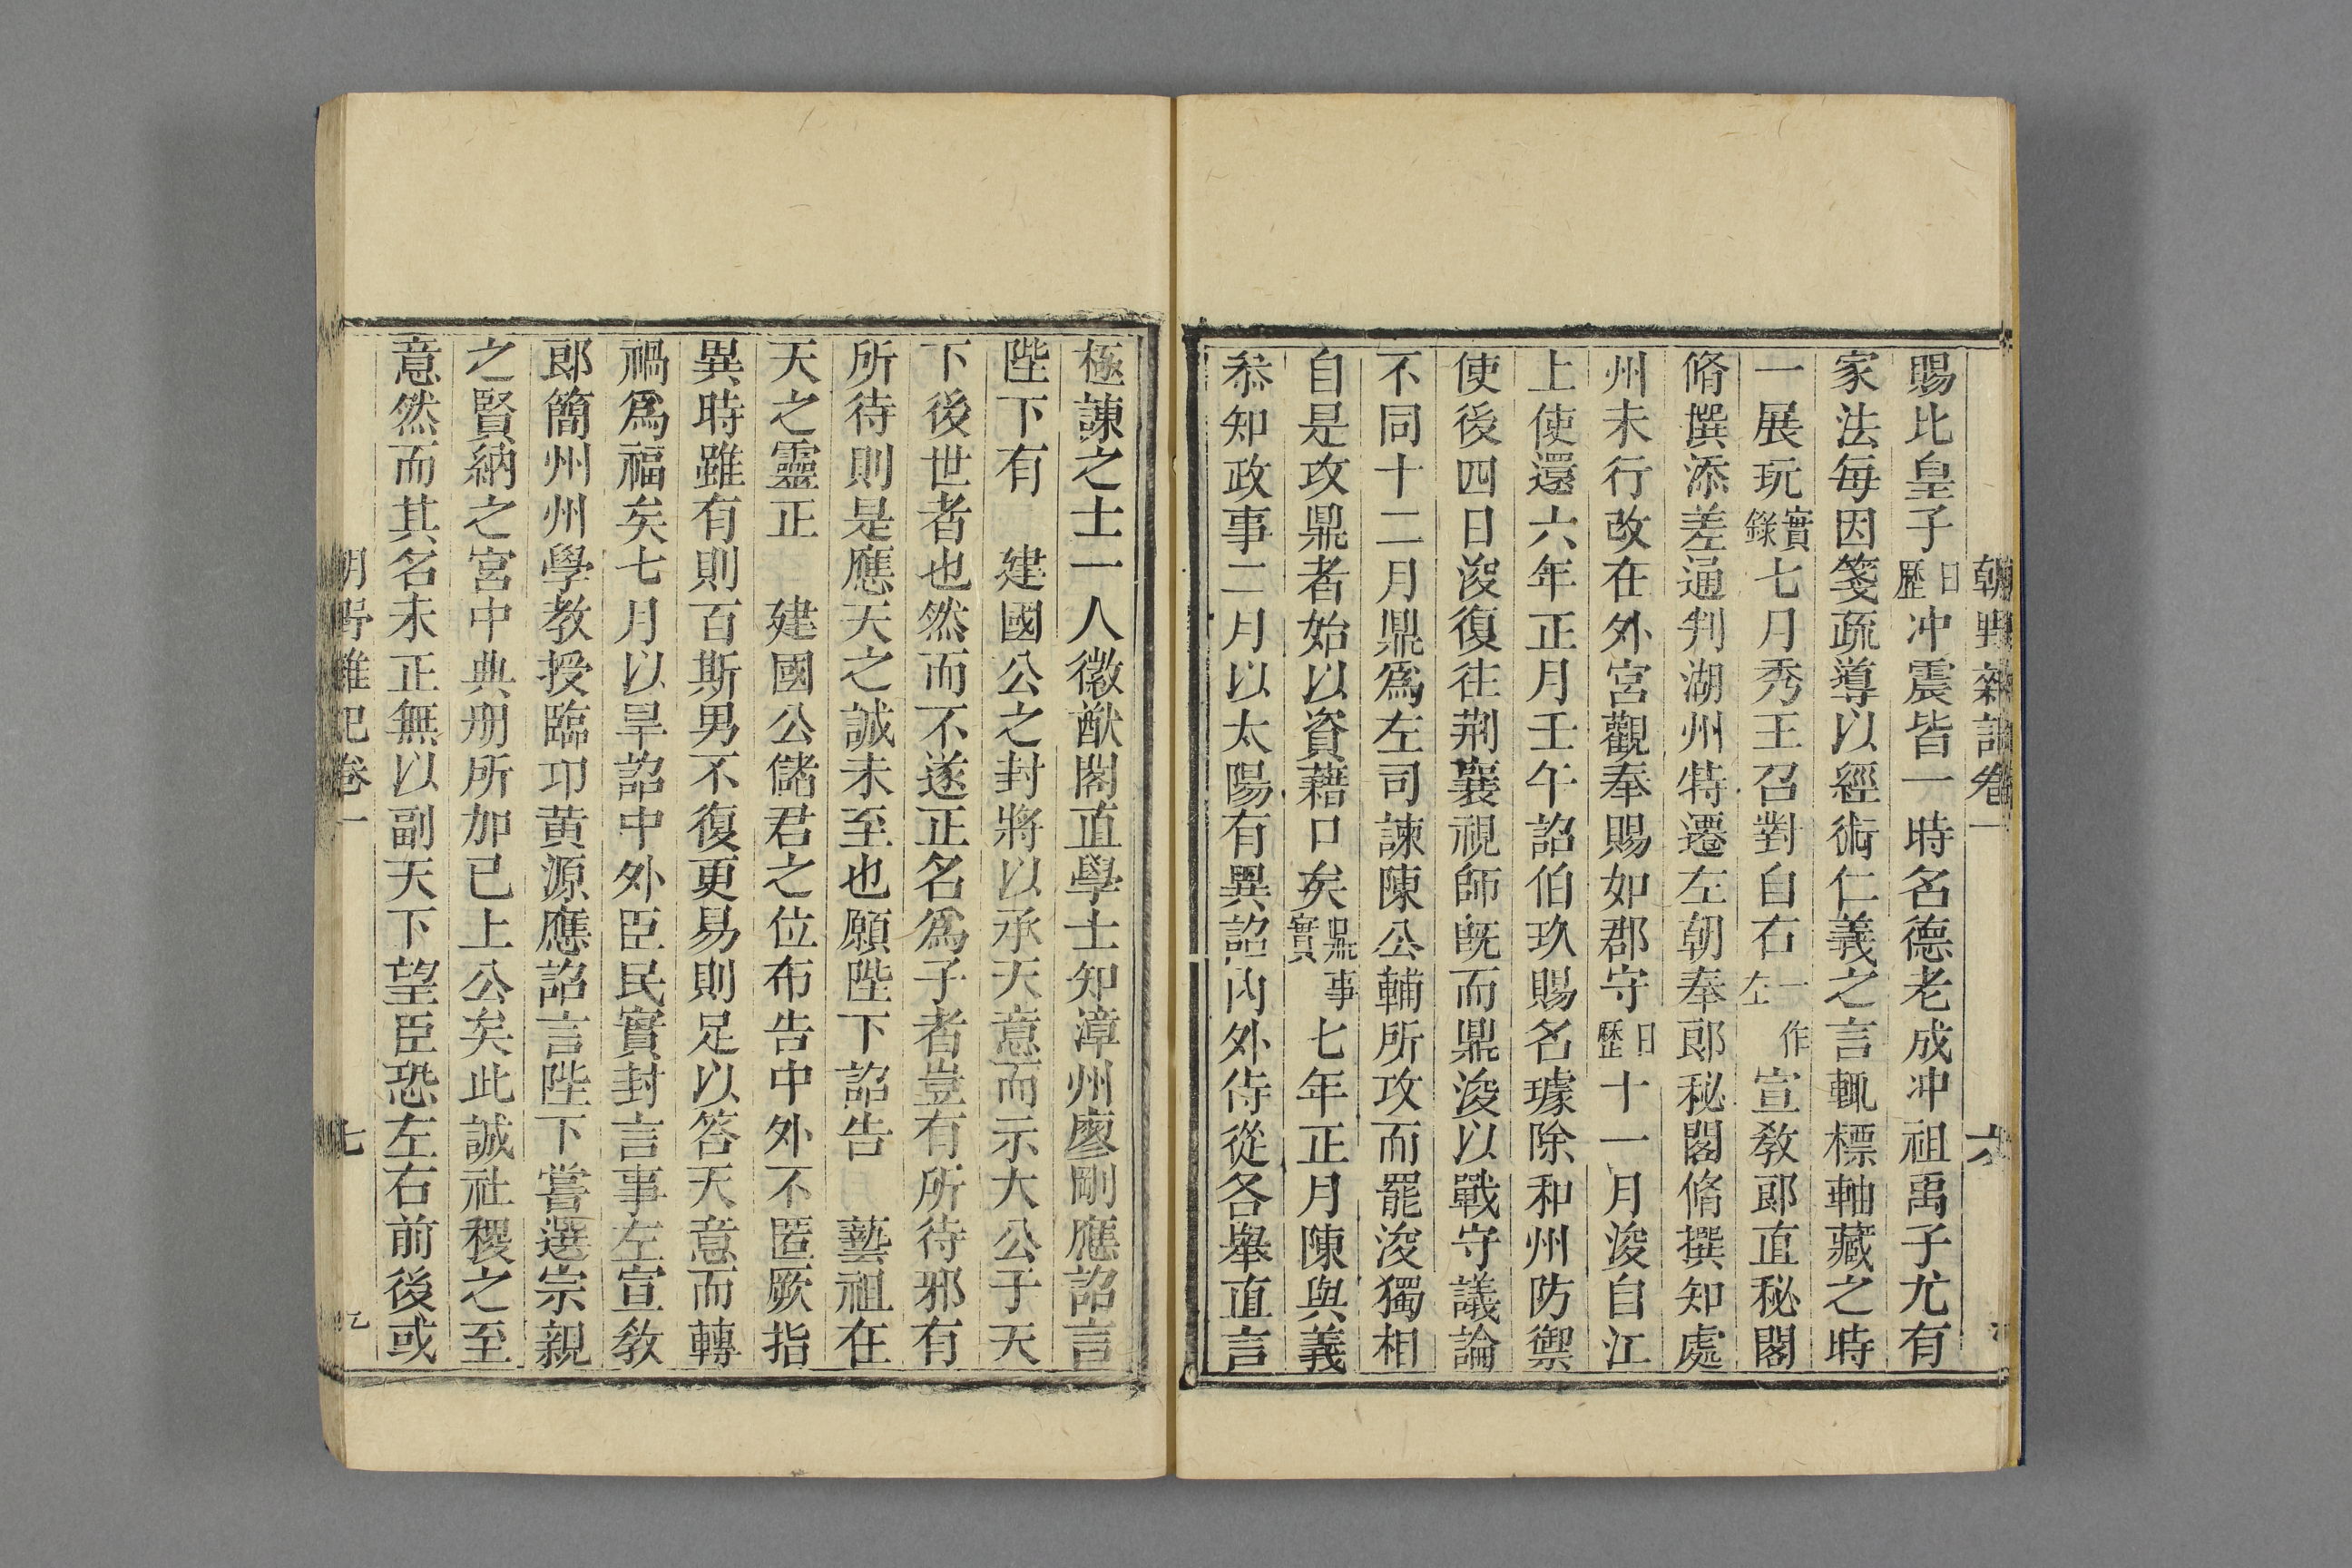 朝野雜記卷一 六
賜比皇子日歷冲震皆一時名德老成冲祖禹子尤有
家法每因箋疏導以經術仁義之言輒標軸藏之時
一展玩實錄七月秀王召對自右一作左宣敎郎直秘閣
脩撰添差通判湖州特遷左朝奉郎秘閣脩撰知處
州未行改在外宮觀奉賜如郡守日歷十一月浚自江
上使還六年正月壬午詔伯玖賜名璩除和州防禦
使後四日浚復往荆襄視師旣而鼎浚以戰守議論
不同十二月鼎爲左司諫陳公輔所攻而罷浚獨相
自是攻鼎者始以資藉口矣鼎事實七年正月陳與義
叅知政事二月以太陽有異詔內外侍從各舉直言
極諫之士一人徽猷閣直學士知漳州廖剛應詔言
陛下有 建國公之封將以承天意而示大公于天
下後世者也然而不遂正名爲子者豈有所待邪有
所待則是應天之誠未至也願陛下詔告 藝祖在
天之靈正 建國公儲君之位布告中外不匿厥指
異時雖有則百斯男不復更易則足以答天意而轉
禍爲福矣七月以旱詔中外臣民實封言事左宣敎
郎簡州州學教授臨卭黄源應詔言陛下嘗選宗親
之賢納之宮中典册所加已上公矣此誠社稷之至
意然而其名未正無以副天下望臣恐左右前後或
朝野雜記卷一 七